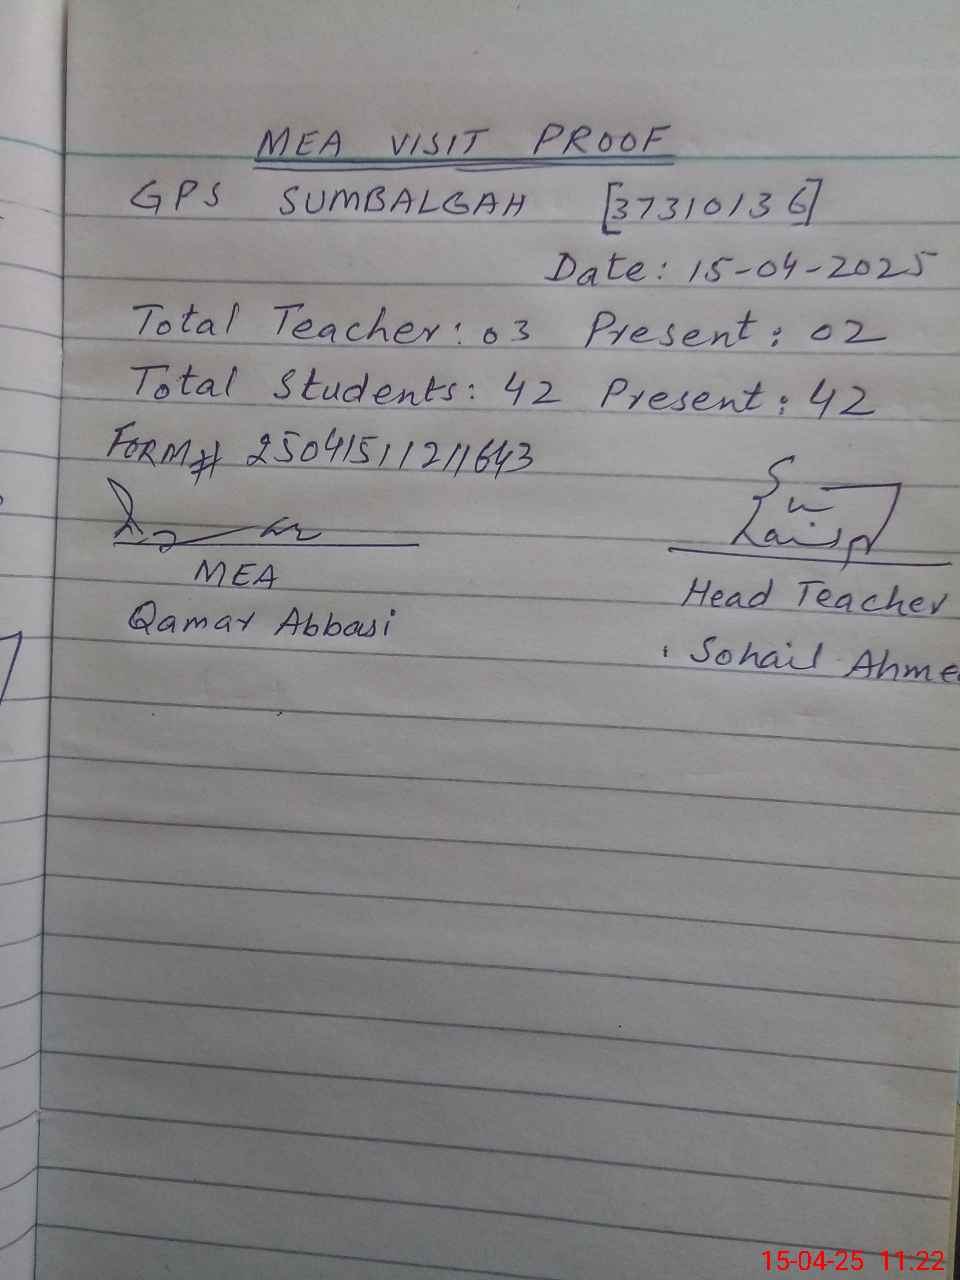 MEA VISIT PROOF
GPS SUMBALGAH [37310136]
Date: 15-04-2025
Total Teacher: 03 Present: 02
Total Students: 42 Present: 42
FORM# 25041511211643
MEA
Head Teacher
Qamar Abbasi
Sohail Ahme
15-04-25 11:22